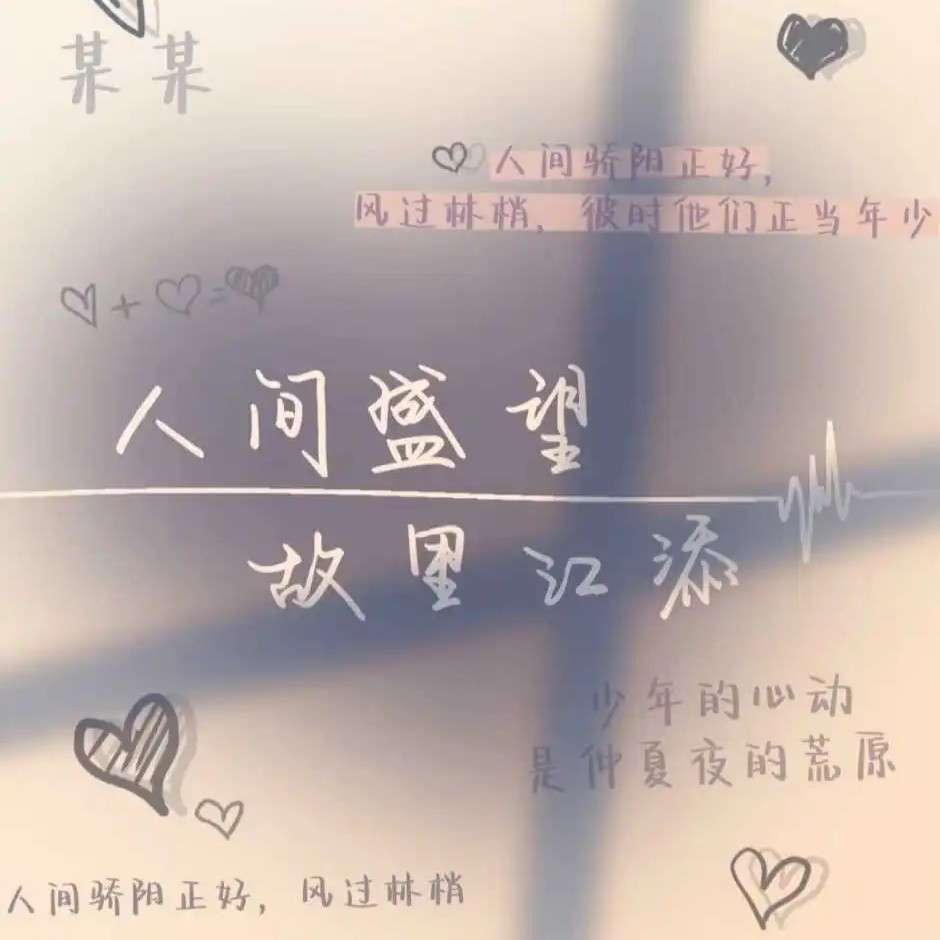 某某
人间骄阳正好，
风过林梢，彼时他们正当年少
人间盛望
故里江添
少年的心动
是仲夏夜的荒原
人间骄阳正好，风过林梢